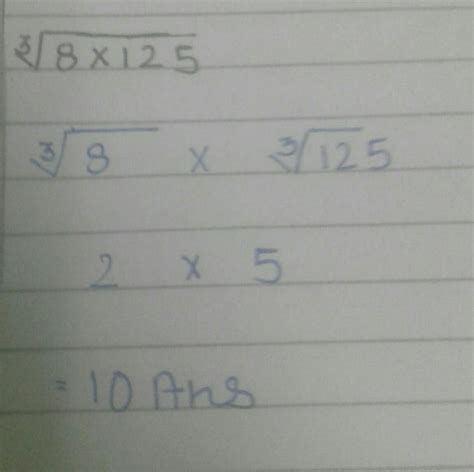 ∛8×125
∛8 × ∛125
2 × 5
= 10 Ans